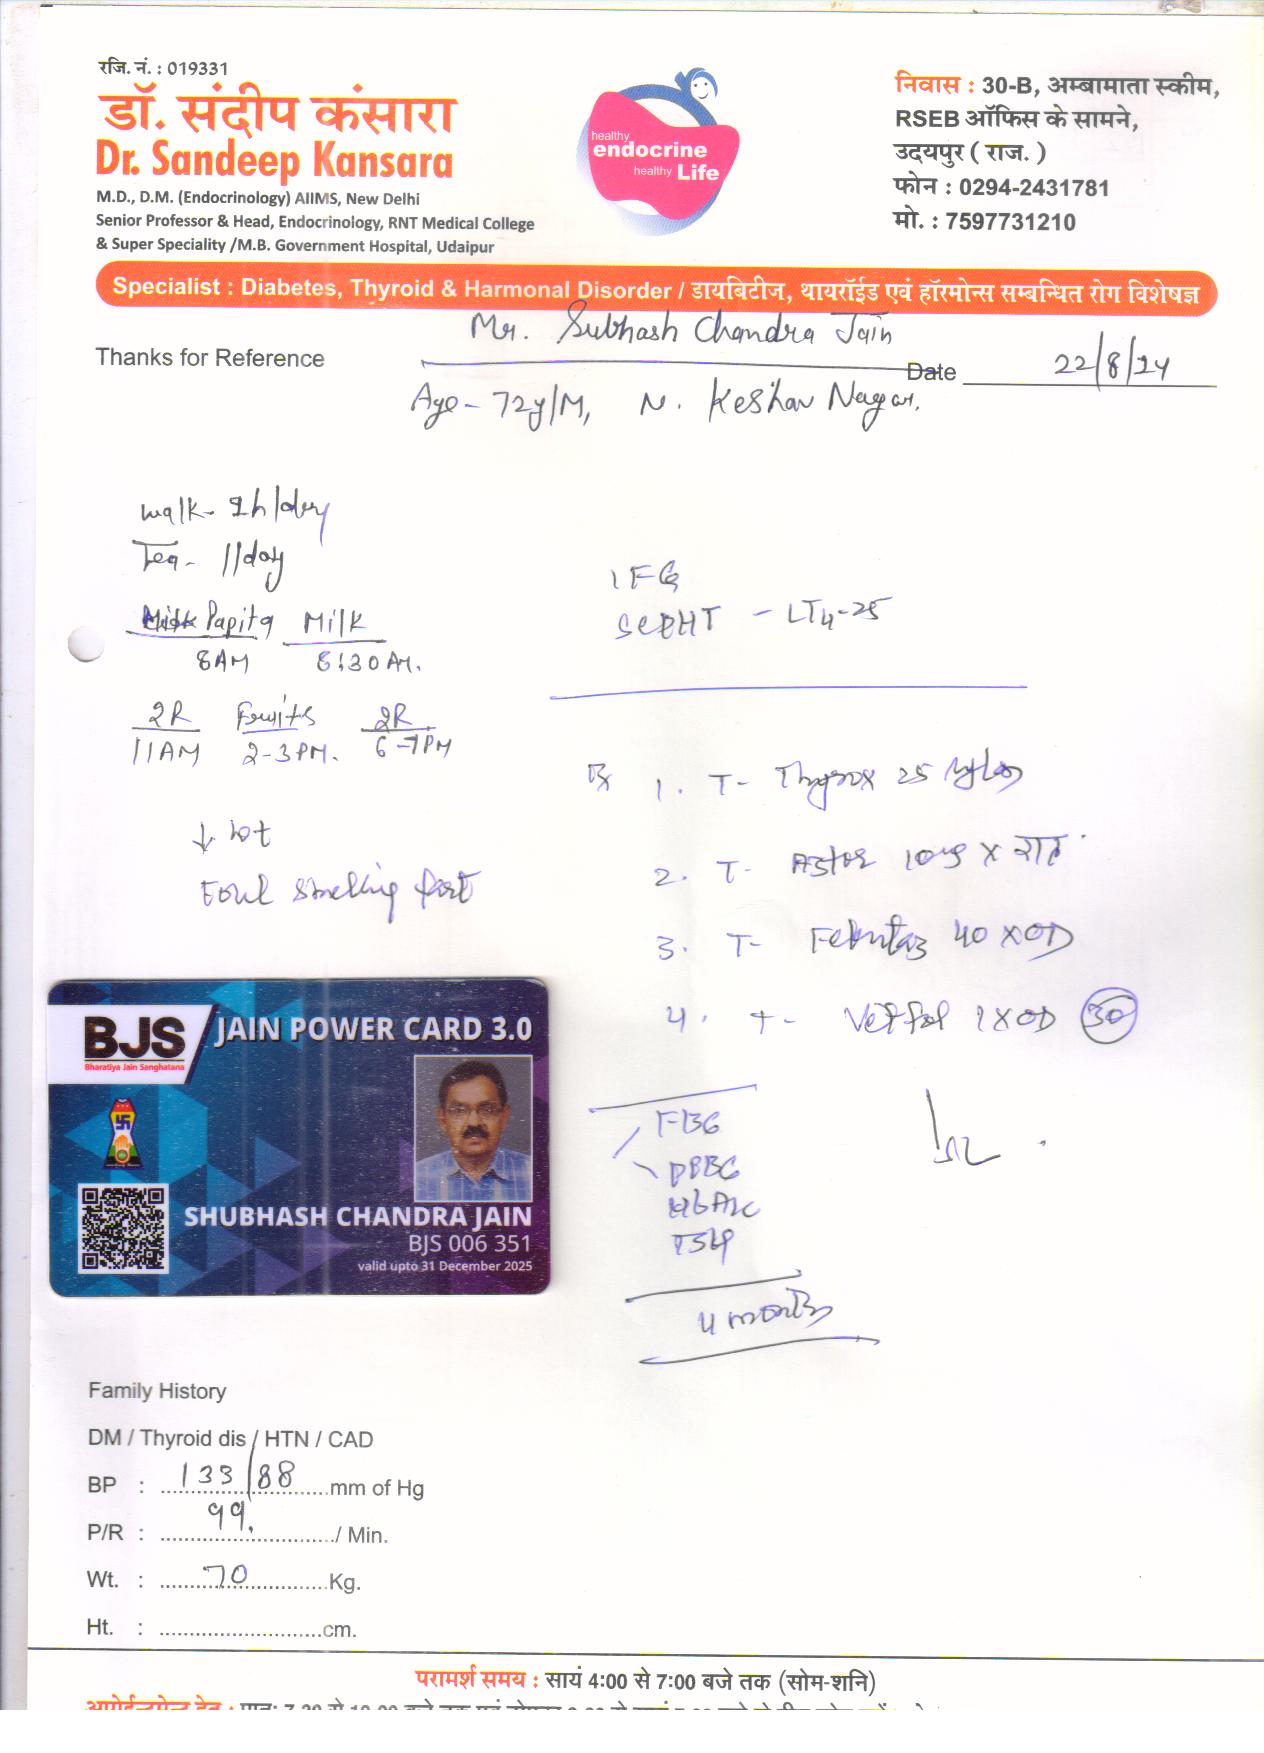 रजि. नं. : 019331
डॉ. संदीप कंसारा
Dr. Sandeep Kansara
M.D., D.M. (Endocrinology) AIIMS, New Delhi
Senior Professor & Head, Endocrinology, RNT Medical College
& Super Speciality /M.B. Government Hospital, Udaipur
healthy
endocrine
healthy Life
निवास : 30-B, अम्बामाता स्कीम,
RSEB ऑफिस के सामने,
उदयपुर ( राज. )
फोन : 0294-2431781
मो. : 7597731210
Specialist : Diabetes, Thyroid & Harmonal Disorder / डायबिटीज, थायरॉईड एवं हॉरमोन्स सम्बन्धित रोग विशेषज्ञ
Mr. Subhash Chandra Jain
Thanks for Reference
Date 22/8/24
Age - 72y/M, N. Keshav Nagar.
Walk - /day
Tea - 1/day
Papita Milk
8AM 8:30 AM.
2R Fruits 2R
11AM 2-3 PM. 6-7PM
↓ wt
Foul smelling
IFG
SCPHT - LT4-25
Rx 1. T- Thyrox 25
2. T- 10mg x रात
3. T- 40 x OD
4. T- 1 x OD 30
FBG
PPBG
HbA1c
TSH
4 months
BJS
Bharatiya Jain Sanghatana
JAIN POWER CARD 3.0
SHUBHASH CHANDRA JAIN
BJS 006 351
valid upto 31 December 2025
Family History
DM / Thyroid dis / HTN / CAD
BP : 133/88 mm of Hg
P/R : 99. / Min.
Wt. : 70 Kg.
Ht. : cm.
परामर्श समय : सायं 4:00 से 7:00 बजे तक (सोम-शनि)